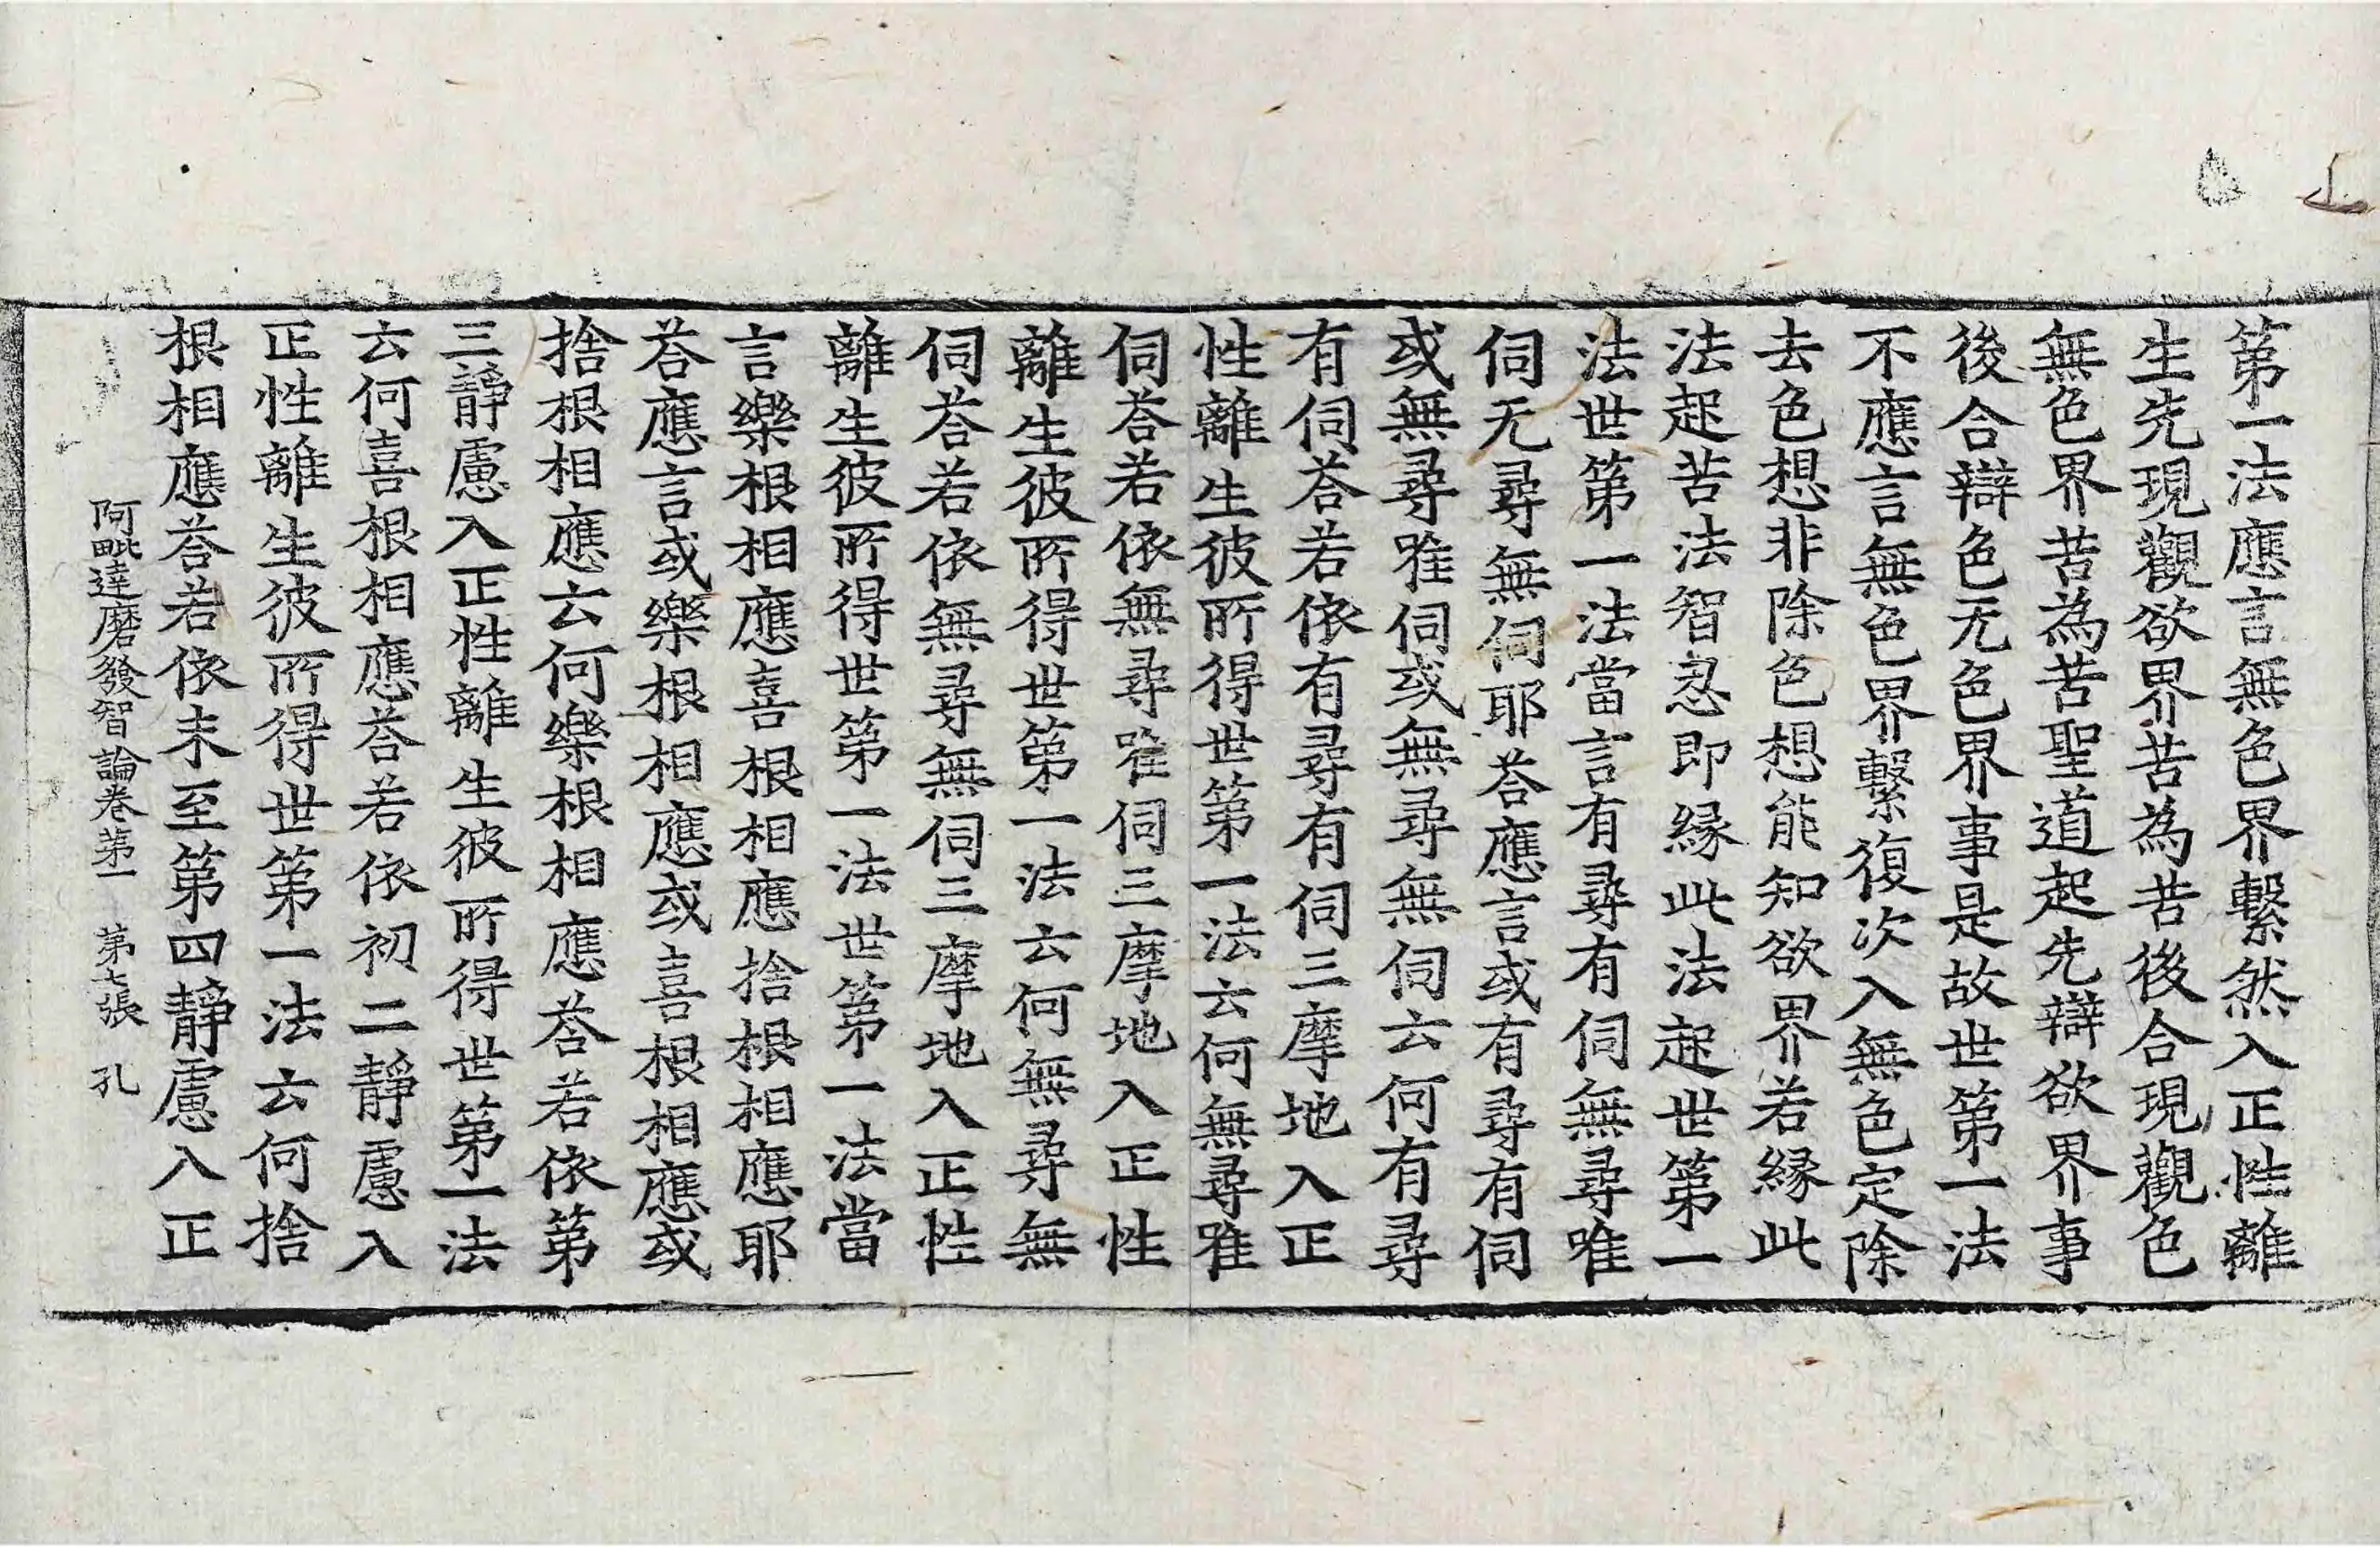 第一法應言無色界繫然入正性離
生先現觀欲界苦為苦後合現觀色
無色界苦為苦聖道起先辯欲界事
後合辯色无色界事是故世第一法
不應言無色界繫復次入無色定除
去色想非除色想能知欲界若緣此
法起苦法智忍即緣此法起世第一
法世第一法當言有尋有伺無尋唯
伺无尋無伺耶荅應言或有尋有伺
或無尋唯伺或無尋無伺云何有尋
有伺荅若依有尋有伺三摩地入正
性離生彼所得世第一法云何無尋唯
伺荅若依無尋唯伺三摩地入正性
離生彼所得世第一法云何無尋無
伺荅若依無尋無伺三摩地入正性
離生彼所得世第一法世第一法當
言樂根相應喜根相應捨根相應耶
荅應言或樂根相應或喜根相應或
捨根相應云何樂根相應荅若依第
三靜慮入正性離生彼所得世第一法
云何喜根相應荅若依初二靜慮入
正性離生彼所得世第一法云何捨
根相應荅若依未至第四靜慮入正
阿毗達磨發智論卷第一 第七張 孔